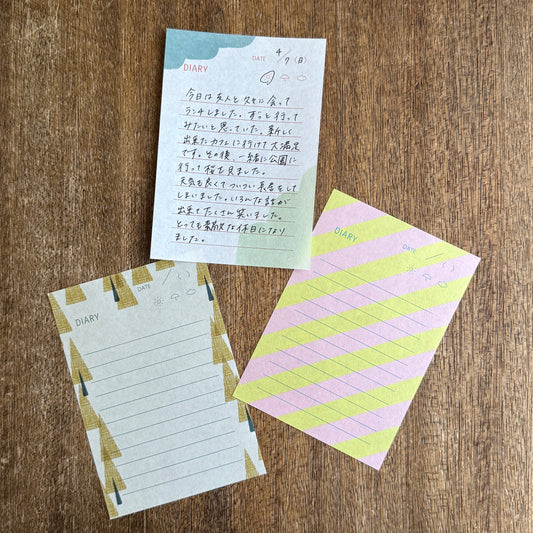 DIARY
DATE 4/7(日)
今日は友人と久々に会って
ランチしました。ずっと行って
みたいと思っていた、新しく
出来たカフェに行けて大満足
です。その後、一緒に公園に
行って桜を見ました。
天気も良くてついつい長居をして
しまいました。いろんな話が
出来てたくさん笑いました。
とっても素敵な休日になり
ました。
DIARY
DATE / ( )
DIARY
DATE / ( )